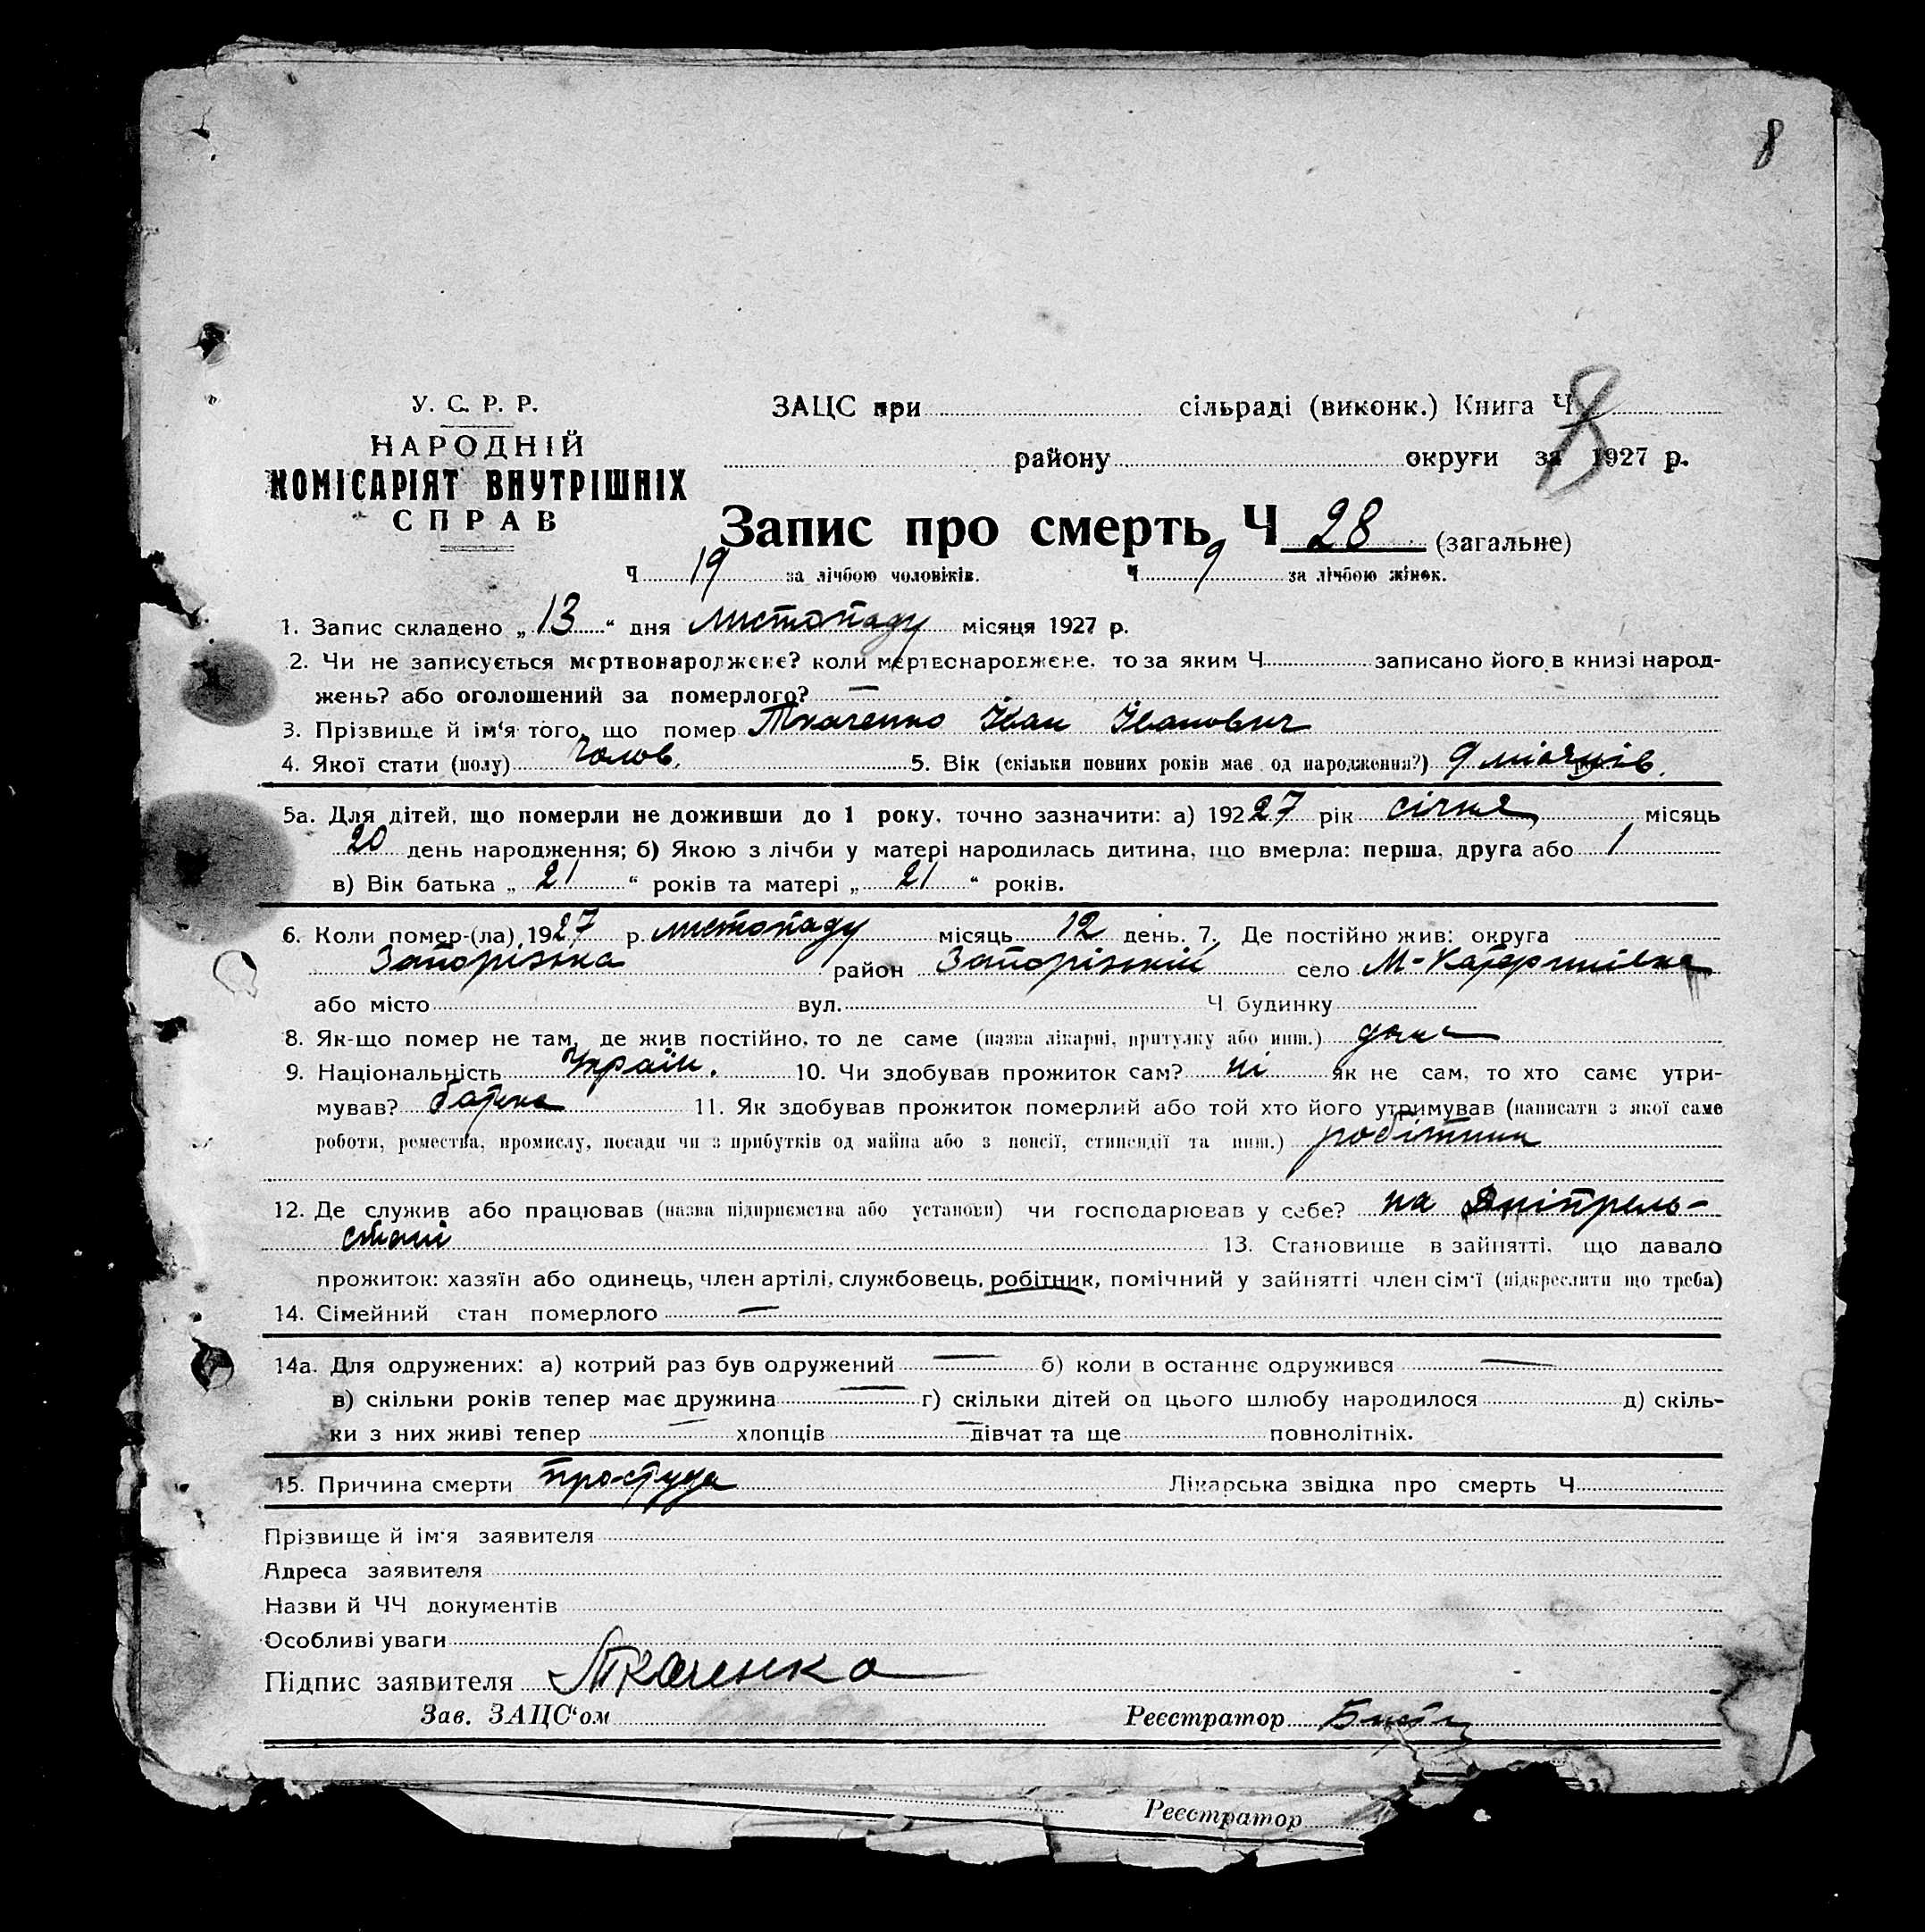 8
У. С. Р. Р.
НАРОДНІЙ
КОМІСАРІЯТ ВНУТРІШНІХ
СПРАВ
ЗАЦС при сільраді (виконк.) Книга Ч 8
району округи за 1927 р.
Запис про смерть Ч 28 (загальне)
Ч 19 за лічбою чоловіків. Ч 9 за лічбою жінок.
1. Запис складено „ 13 “ дня листопаду місяця 1927 р.
2. Чи не записується мертвонароджене? коли мертвонароджене, то за яким Ч записано його в книзі народ-
жень? або оголошений за померлого? —
3. Прізвище й ім‘я того, що помер Ткаченко Іван Іванович
4. Якої стати (полу) Чолов. 5. Вік (скільки повних років має од народження?) 9 місяців.
5а. Для дітей, що померли не доживши до 1 року, точно зазначити: а) 192 27 рік січня місяць
20 день народження; б) Якою з лічби у матері народилась дитина, що вмерла: перша, друга або 1
в) Вік батька „ 21 “ років та матері „ 21 “ років.
6. Коли помер-(ла) 1927 р. листопаду місяць 12 день. 7. Де постійно жив: округа
Запорізька район Запорізький село М-Катеринівка
або місто вул. Ч будинку
8. Як-що помер не там, де жив постійно, то де саме (назва лікарні, притулку або инш.)
9. Національність Україн. 10. Чи здобував прожиток сам? ні як не сам, то хто саме утри-
мував? батько 11. Як здобував прожиток померлий або той хто його утримував (написати з якої саме
роботи, ремества, промислу, посади чи з прибутків од майна або з пенсії, стипендії та инш.) робітник
12. Де служив або працював (назва підприємства або установи) чи господарював у себе? на Дніпрель-
стані 13. Становище в зайнятті, що давало
прожиток: хазяїн або одинець, член артілі, службовець, робітник, помічний у зайнятті член сім‘ї (підкреслити що треба)
14. Сімейний стан померлого —
14а. Для одружених: а) котрий раз був одружений — б) коли в останнє одружився —
в) скільки років тепер має дружина — г) скільки дітей од цього шлюбу народилося д) скіль-
ки з них живі тепер — хлопців — дівчат та ще повнолітніх.
15. Причина смерти простуда Лікарська звідка про смерть Ч
Прізвище й ім‘я заявителя
Адреса заявителя
Назви й ЧЧ документів
Особливі уваги
Підпис заявителя Ткаченко
Зав. ЗАЦС‘ом Реєстратор
Реєстратор